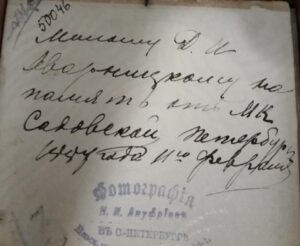 50046
Милому Д. И
Яворницкому на
память отъ МК
Садовской Петербургъ
года 11го февраля
Фотографія
Н. И. Ануфріева
ВЪ С-ПЕТЕРБУРГѢ